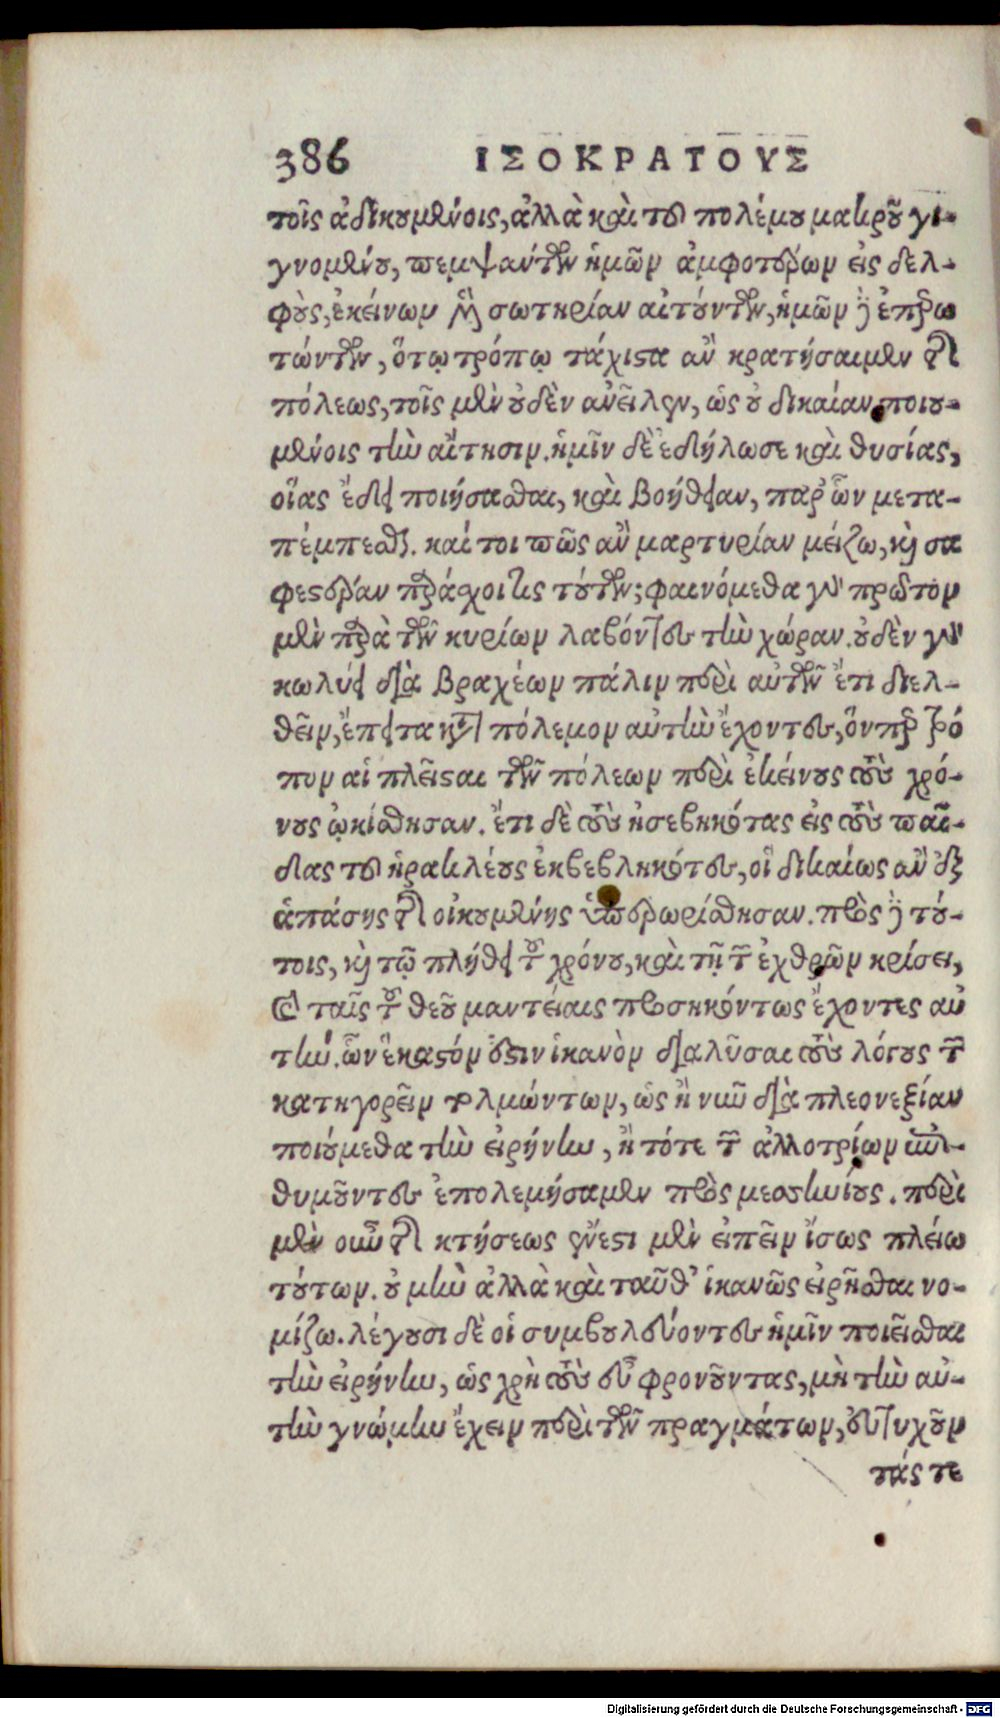 386 ΙΣΟΚΡΑΤΟΥΣ
τοῖς ἀδικουμένοις, ἀλλὰ καὶ τοῦ πολέμου μακροῦ γι-
γνομένου, πεμψάντων ἡμῶν ἀμφοτέρων εἰς δελ-
φοὺς, ἐκείνων μὲν σωτηρίαν αἰτούντων, ἡμῶν δὲ ἐπερω
τώντων, ὅτῳ τρόπῳ τάχιστα ἂν κρατήσαιμεν τῆς
πόλεως, τοῖς μὲν οὐδὲν ἀνεῖλεν, ὡς οὐ δικαίαν ποιου-
μένοις τὴν αἴτησιν. ἡμῖν δὲ ἐδήλωσε καὶ θυσίας,
οἵας ἔδει ποιήσασθαι, καὶ βοήθειαν, παρ' ὧν μετα-
πέμπεσθαι. καί τοι πῶς ἂν μαρτυρίαν μείζω, καὶ σα
φεστέραν παράσχοι τις τούτων; φαινόμεθα γὰρ πρῶτον
μὲν παρὰ τῶν κυρίων λαβόντες τὴν χώραν. οὐδὲν γὰρ
κωλύει διὰ βραχέων πάλιν περὶ αὐτῶν ἔτι διελ-
θεῖν, ἔπειτα κατὰ πόλεμον αὐτὴν ἔχοντες, ὅνπερ τρό
πον αἱ πλεῖσται τῶν πόλεων περὶ ἐκείνους τοὺς χρό-
νους ᾠκίσθησαν. ἔτι δὲ τοὺς ἠσεβηκότας εἰς τοὺς παῖ-
δας τοῦ ἡρακλέους ἐκβεβληκότες, οἳ δικαίως ἂν ἐξ
ἁπάσης τῆς οἰκουμένης ὑπερωρίσθησαν. πρὸς δὲ τού-
τοις, καὶ τῷ πλήθει τοῦ χρόνου, καὶ τῇ τῶν ἐχθρῶν κρίσει,
καὶ ταῖς τοῦ θεοῦ μαντείαις προσηκόντως ἔχοντες αὐ
τήν. ὧν ἕκαστόν ἐστιν ἱκανὸν διαλῦσαι τοὺς λόγους τῶν
κατηγορεῖν τολμώντων, ὡς ἢ νῦν διὰ πλεονεξίαν
ποιούμεθα τὴν εἰρήνην, ἢ τότε τῶν ἀλλοτρίων ἐπι-
θυμοῦντες ἐπολεμήσαμεν πρὸς μεσσηνίους. περὶ
μὲν οὖν τῆς κτήσεως ἔνεστι μὲν εἰπεῖν ἴσως πλείω
τούτων. οὐ μὴν ἀλλὰ καὶ ταῦθ' ἱκανῶς εἰρῆσθαι νο-
μίζω. λέγουσι δὲ οἱ συμβουλεύοντες ἡμῖν ποιεῖσθαι
τὴν εἰρήνην, ὡς χρὴ τοὺς εὖ φρονοῦντας, μὴ τὴν αὐ-
τὴν γνώμην ἔχειν περὶ τῶν πραγμάτων, εὐτυχοῦν
τάς τε
Digitalisierung gefördert durch die Deutsche Forschungsgemeinschaft - DFG